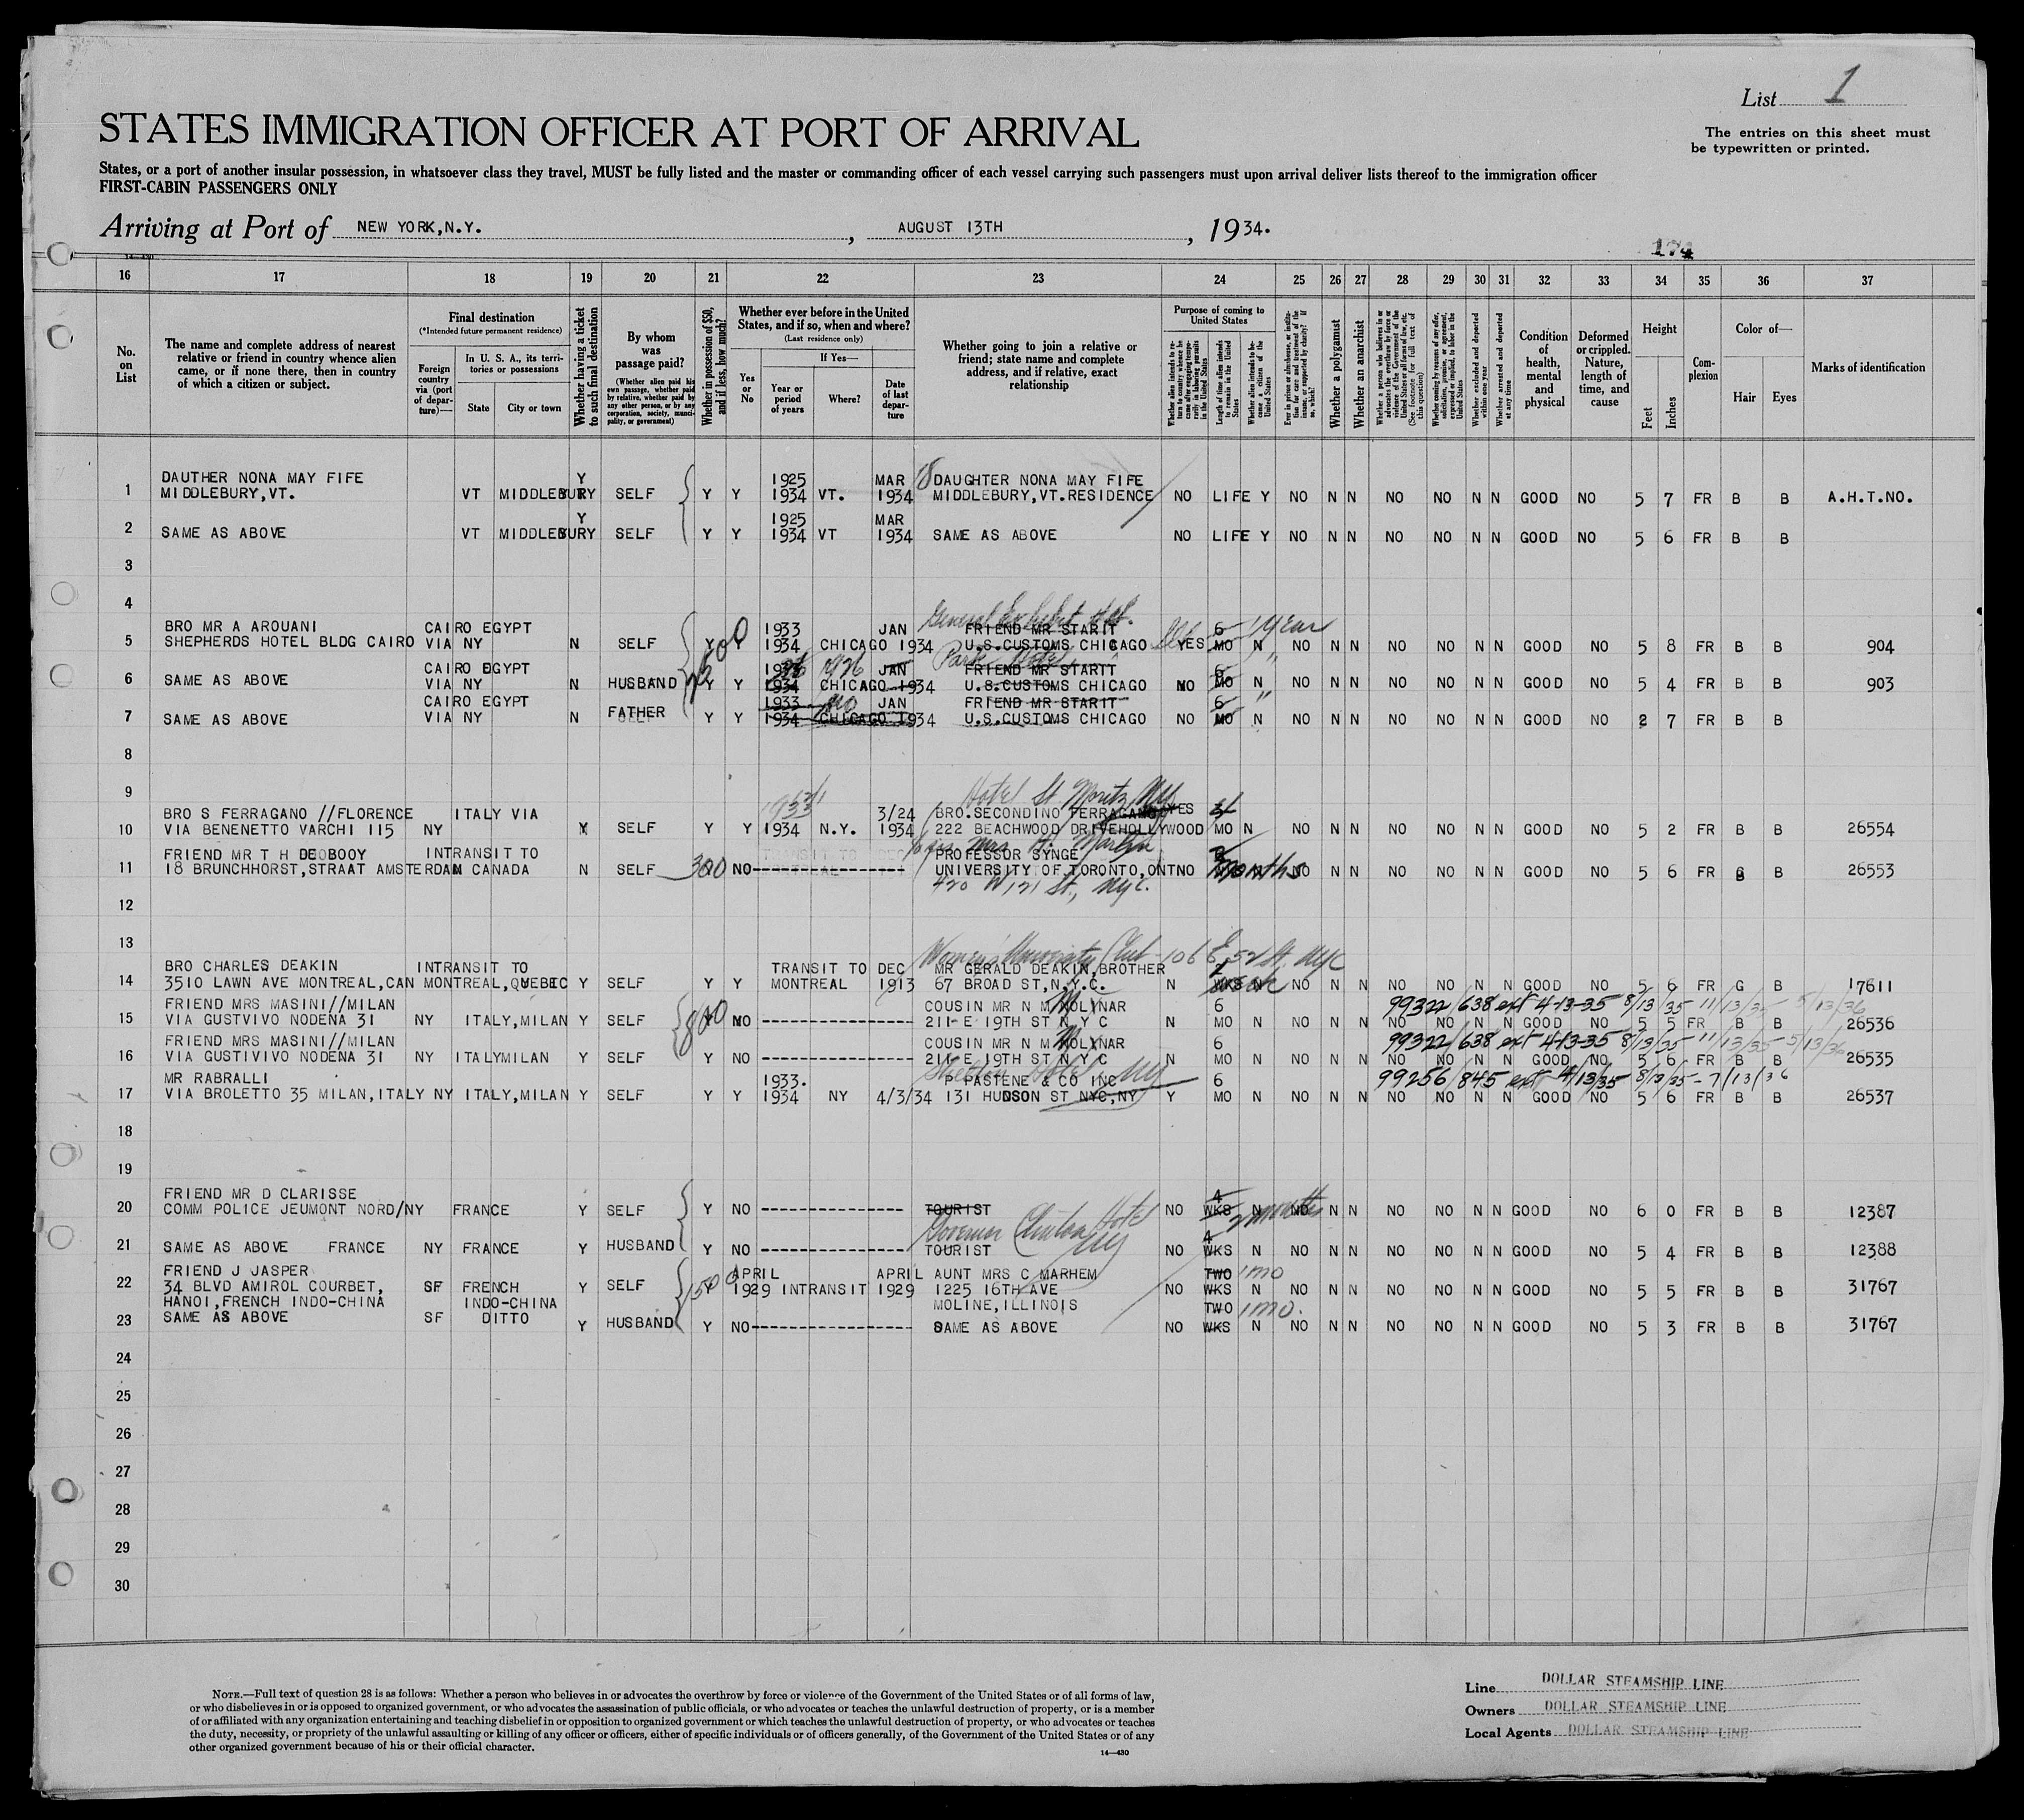 List 1
STATES IMMIGRATION OFFICER AT PORT OF ARRIVAL
The entries on this sheet must
be typewritten or printed.
States, or a port of another insular possession, in whatsoever class they travel, MUST be fully listed and the master or commanding officer of each vessel carrying such passengers must upon arrival deliver lists thereof to the immigration officer
FIRST-CABIN PASSENGERS ONLY
Arriving at Port of NEW YORK,N.Y. , AUGUST 13TH , 1934.
174
14-430
16 17 18 19 20 21 22 23 24 25 26 27 28 29 30 31 32 33 34 35 36 37
No. on List
The name and complete address of nearest relative or friend in country whence alien came, or if none there, then in country of which a citizen or subject.
Final destination
(*Intended future permanent residence)
Foreign country via (port of departure)—
In U. S. A., its territories or possessions
State City or town
Whether having a ticket to such final destination
By whom was passage paid?
(Whether alien paid his own passage, whether paid by relative, whether paid by any other person, or by any corporation, society, municipality, or government)
Whether in possession of $50, and if less, how much?
Whether ever before in the United States, and if so, when and where?
(Last residence only)
Yes or No
If Yes—
Year or period of years
Where?
Date of last departure
Whether going to join a relative or friend; state name and complete address, and if relative, exact relationship
Purpose of coming to United States
Whether alien intends to return to country whence he came after engaging temporarily in laboring pursuits in the United States
Length of time alien intends to remain in the United States
Whether alien intends to become a citizen of the United States
Ever in prison or almshouse, or institution for care and treatment of the insane, or supported by charity? If so, which?
Whether a polygamist
Whether an anarchist
Whether a person who believes in or advocates the overthrow by force or violence of the Government of the United States or all forms of law, etc. (See footnote for full text of this question)
Whether coming by reason of any offer, solicitation, promise, or agreement, expressed or implied, to labor in the United States
Whether excluded and deported within one year
Whether arrested and deported at any time
Condition of health, mental and physical
Deformed or crippled. Nature, length of time, and cause
Height
Feet Inches
Complexion
Color of—
Hair Eyes
Marks of identification
DAUTHER NONA MAY FIFE Y 1925 MAR DAUGHTER NONA MAY FIFE
1 MIDDLEBURY,VT. VT MIDDLEBURY SELF Y Y 1934 VT. 1934 MIDDLEBURY,VT.RESIDENCE NO LIFE Y NO N N NO NO N N GOOD NO 5 7 FR B B A.H.T.NO.
Y 1925 MAR
2 SAME AS ABOVE VT MIDDLEBURY SELF Y Y 1934 VT 1934 SAME AS ABOVE NO LIFE Y NO N N NO NO N N GOOD NO 5 6 FR B B
3
4
General Exhibit
BRO MR A AROUANI CAIRO EGYPT 1933 JAN FRIEND MR STARIT 6 1 year
5 SHEPHERDS HOTEL BLDG CAIRO VIA NY N SELF Y Y 1934 CHICAGO 1934 U.S.CUSTOMS CHICAGO YES MO N NO N N NO NO N N GOOD NO 5 8 FR B B 904
CAIRO EGYPT 1926 JAN FRIEND MR STARTT 6 "
6 SAME AS ABOVE VIA NY N HUSBAND Y Y 1934 CHICAGO 1934 U.S.CUSTOMS CHICAGO NO MO N NO N N NO NO N N GOOD NO 5 4 FR B B 903
CAIRO EGYPT 1933 no JAN FRIEND MR STARIT 6 "
7 SAME AS ABOVE VIA NY N FATHER Y Y 1934 CHICAGO 1934 U.S.CUSTOMS CHICAGO NO MO N NO N N NO NO N N GOOD NO 2 7 FR B B
8
9
Hotel St. Moritz NY
BRO S FERRAGANO //FLORENCE ITALY VIA 3/24 BRO.SECONDINO FERRAGANO YES
10 VIA BENENETTO VARCHI 115 NY Y SELF Y Y 1934 N.Y. 1934 222 BEACHWOOD DRIVEHOLLYWOOD MO N NO N N NO NO N N GOOD NO 5 2 FR B B 26554
Mrs. A. Martin
FRIEND MR T H DEOBOOY INTRANSIT TO PROFESSOR SYNGE
11 18 BRUNCHHORST,STRAAT AMSTERDAM CANADA N SELF 300 NO UNIVERSITY OF TORONTO,ONT NO months NO N N NO NO N N GOOD NO 5 6 FR B 26553
420 W 121 St, NYC.
12
13
Women's University Club - 106 E 52 St. NYC
BRO CHARLES DEAKIN INTRANSIT TO TRANSIT TO DEC MR GERALD DEAKIN,BROTHER
14 3510 LAWN AVE MONTREAL,CAN MONTREAL,QUEBEC Y SELF Y Y MONTREAL 1913 67 BROAD ST,N.Y.C. N NO N N NO NO N N GOOD NO 5 6 FR G B 17611
FRIEND MRS MASINI//MILAN 800 COUSIN MR N M MOLYNAR 6 99322/638 ext 4-13-35 8/13/35 11/13/35 5/13/36
15 VIA GUSTVIVO NODENA 31 NY ITALY,MILAN Y SELF NO 211 E 19TH ST N Y C N MO N NO N N NO NO N N GOOD NO 5 5 FR B B 26536
FRIEND MRS MASINI//MILAN COUSIN MR N M MOLYNAR 6 99322/638 ext 4-13-35 8/13/35 11/13/35 5/13/36
16 VIA GUSTIVIVO NODENA 31 NY ITALYMILAN Y SELF Y NO 211 E 19TH ST N Y C N MO N NO N N NO NO N N GOOD NO 5 6 FR B B 26535
Hotel NY
MR RABRALLI 1933. P PASTENE & CO INC 6 99256/845 ext 4/13/35 8/13/35 - 7/13/36
17 VIA BROLETTO 35 MILAN,ITALY NY ITALY,MILAN Y SELF Y Y 1934 NY 4/3/34 131 HUDSON ST NYC,NY Y MO N NO N N NO NO N N GOOD NO 5 6 FR B B 26537
18
19
FRIEND MR D CLARISSE 4
20 COMM POLICE JEUMONT NORD/NY FRANCE Y SELF Y NO TOURIST NO WKS 2 months NO N N NO NO N N GOOD NO 6 0 FR B B 12387
Governor Clinton Hotel NY 4
21 SAME AS ABOVE FRANCE NY FRANCE Y HUSBAND Y NO TOURIST NO WKS N NO N N NO NO N N GOOD NO 5 4 FR B B 12388
FRIEND J JASPER 1500 APRIL APRIL AUNT MRS C MARHEM TWO 1 mo
22 34 BLVD AMIROL COURBET, SF FRENCH Y SELF Y 1929 INTRANSIT 1929 1225 16TH AVE NO WKS N NO N N NO NO N N GOOD NO 5 5 FR B B 31767
HANOI,FRENCH INDO-CHINA INDO-CHINA MOLINE,ILLINOIS TWO 1 mo.
23 SAME AS ABOVE SF DITTO Y HUSBAND Y NO SAME AS ABOVE NO WKS N NO N N NO NO N N GOOD NO 5 3 FR B B 31767
24
25
26
27
28
29
30
NOTE.—Full text of question 28 is as follows: Whether a person who believes in or advocates the overthrow by force or violence of the Government of the United States or of all forms of law,
or who disbelieves in or is opposed to organized government, or who advocates the assassination of public officials, or who advocates or teaches the unlawful destruction of property, or is a member
of or affiliated with any organization entertaining and teaching disbelief in or opposition to organized government or which teaches the unlawful destruction of property, or who advocates or teaches
the duty, necessity, or propriety of the unlawful assaulting or killing of any officer or officers, either of specific individuals or of officers generally, of the Government of the United States or of any
other organized government because of his or their official character.
14—430
Line DOLLAR STEAMSHIP LINE
Owners DOLLAR STEAMSHIP LINE
Local Agents DOLLAR STEAMSHIP LINE